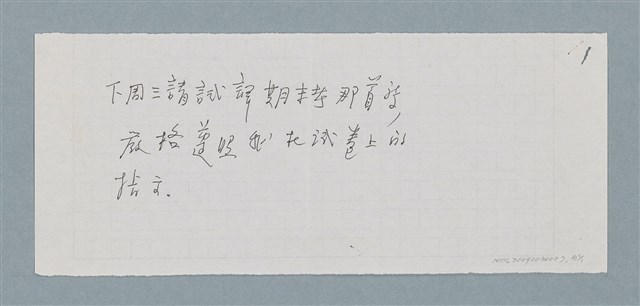 下周三請試譯期末考那首詩,
嚴格遵照我在試卷上的
指示.